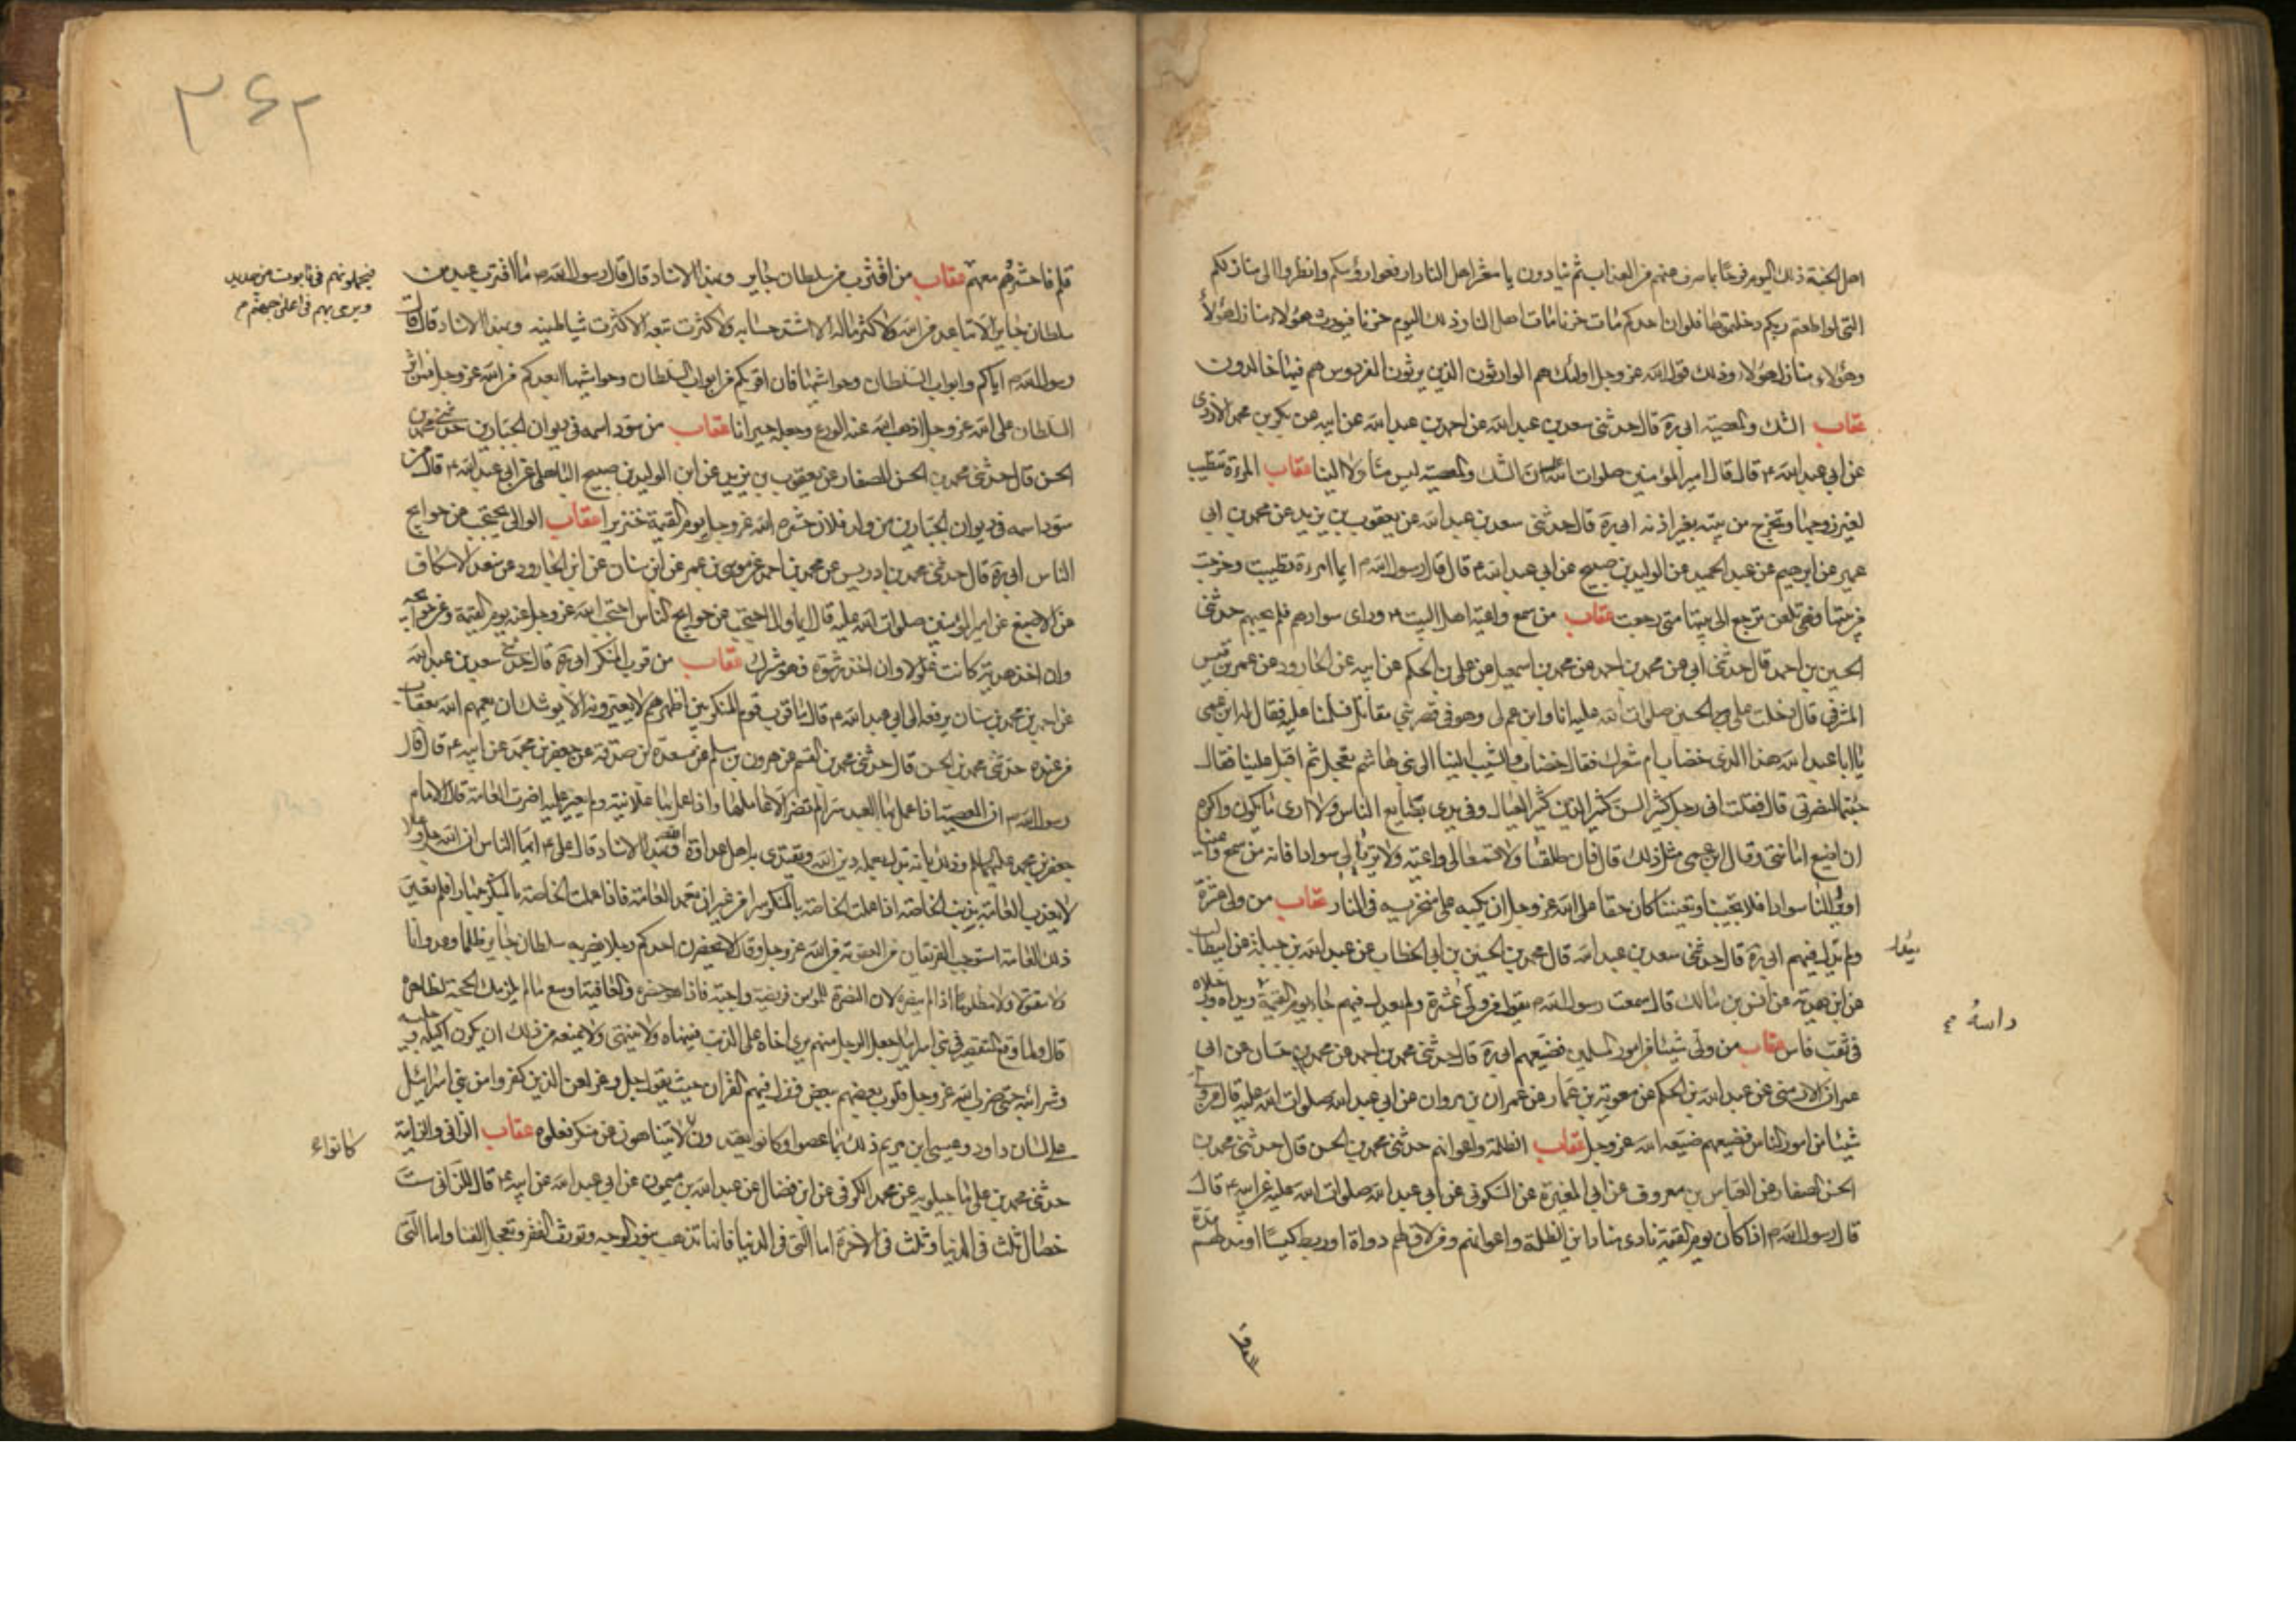 اهل الجنة ذلك اليوم فرحا بما صرف عنهم من العذاب ثم ينادون يا معشر اهل النار ارفعوا رؤسكم وانظروا الى منازلكم
التى لو اطعتم ربكم دخلتموها فلو ان احدكم مات حزنا لمات اهل النار ذلك اليوم حزنا فيورث هؤلاء منازل هؤلاء
وهؤلاء منازل هؤلاء وذلك قول الله عز وجل اولئك هم الوارثون الذين يرثون الفردوس هم فيها خالدون
عقاب الشك والمعصية ابى ره قال حدثنى سعد بن عبد الله عن احمد بن عبد الله عن ابيه عن بكر بن محمد الازدى
عن ابى عبد الله ع قال قال امير المؤمنين صلوات الله عليه ان الشك والمعصية ليس منا ولا الينا عقاب المرءة تتطيب
لغير زوجها وتخرج من بيته بغير اذنه ابى ره قال حدثنى سعد بن عبد الله عن يعقوب بن يزيد عن محمد بن ابى
عمير عن ابرهيم عن عبد الحميد عن الوليد بن صبيح عن ابى عبد الله ع قال قال رسول الله ص ايما امرءة تطيبت وخرجت
من بيتها فهى تلعن حتى ترجع الى بيتها متى رجعت عقاب من سمع واعية اهل البيت ع وراى سوادهم فلم يجبهم حدثنى
الحسين بن احمد قال حدثنى ابى عن محمد بن احمد عن محمد بن اسمعيل عن على بن الحكم عن ابيه عن الجارود عن عمر بن قيس
المشرقى قال دخلت على الحسين صلوات الله عليه انا وابن عم لى وهو فى قصر بنى مقاتل فسلمنا عليه فقال له ابن عمى
يا ابا عبد الله هذا الذى خضاب ام شعرك فقال خضاب والشيب الينا بنى هاشم يعجل ثم اقبل علينا فقال
جئتما لنصرتى قال فقلت انى رجل كثير السن كثير الدين كثير العيال وفى يدى بضايع الناس ولا ادرى ما يكون واكره
ان اضيع امانتى وقال ابن عمى مثل ذلك قال فان طلقتما ولا تسمعا لى واعية ولا تريا لى سوادا فانه من سمع واعيتنا
اورأى لنا سوادا فلا يجيبنا ويعيننا كان حقا على الله عز وجل ان يكبه على منخريه فى النار عقاب من ولى عشرة
ولم يعدل فيهم ابى ره قال حدثنى سعد بن عبد الله قال محمد بن الحسين بن ابى الخطاب عن عبد الله بن جبلة عن ابيطالب
عن ابن هدية عن انس بن مالك قال سمعت رسول الله ص يقول من ولى عشرة ولم يعدل فيهم جاء يوم القيمة ويداه ورجلاه
فى ثقب فاس عقاب من ولى شيئا من امور المسلمين فضيعهم ابى ره قال حدثنى محمد بن احمد عن محمد بن حسان عن ابى
عمران الارمنى عن عبد الله بن الحكم عن معوية بن عمار عن عمران بن مروان عن ابى عبد الله صلوات الله عليه قال من ولى
شيئا من امور الناس فضيعهم ضيعه الله عز وجل عقاب الظلمة واعوانهم حدثنى محمد بن الحسن قال حدثنى محمد بن
الحسن الصفار عن العباس بن معروف عن ابى المغيرة عن السكونى عن ابى عبد الله صلوات الله عليه عن ابيه ع قال
قال رسول الله ص اذا كان يوم القيمة نادى مناد اين الظلمة واعوانهم ومن لاق لهم دواة او ربط كيسا او مد لهم مدة
يعدل
وراسه
قلم فاحشروهم معهم عقاب من اقترب من سلطان جاير وبهذا الاسناد قال قال رسول الله ص ما اقترب عبد من
سلطان جاير الا تباعد من الله ولا كثر ماله الا اشتد حسابه ولا كثرت تبعه الا كثرت شياطينه وبهذا الاسناد قال قال
رسول الله ص اياكم وابواب السلطان وحواشيها فان اقربكم من ابواب السلطان وحواشيها ابعدكم من الله عز وجل فمن اثر
السلطان على الله عز وجل اذهب الله عنه الورع وجعله حيرانا عقاب من سود اسمه فى ديوان الجبارين حدثنى محمد بن
الحسن قال حدثنى محمد بن الحسن الصفار عن يعقوب بن يزيد عن ابن الوليد بن صبيح الكاهلى عن ابى عبد الله ع قال من
سود اسمه فى ديوان الجبارين من ولد فلان حشره الله عز وجل يوم القيمة خنزيرا عقاب الوالى يحتجب عن حوايج
الناس ابى ره قال حدثنى محمد بن ادريس عن محمد بن احمد عن موسى بن عمر عن ابن سنان عن ابن الجارود عن سعد الاسكاف
عن الاصبغ عن امير المؤمنين صلوات الله عليه قال ايما وال احتجب عن حوايج الناس احتجب الله عز وجل عنه يوم القيمة وعن حوائجه
وان اخذ هدية كانت غلولا وان اخذ رشوة فهو مشرك عقاب من قرب المنكر ابى ره قال حدثنى سعد بن عبد الله
عن احمد بن محمد بن سنان يرفعه الى ابى عبد الله ع قال ما قرب قوم المنكر بين اظهرهم لا يعيرونه الا يوشك ان يعمهم الله بعقاب
من عنده حدثنى محمد بن الحسن قال حدثنى محمد بن القسم عن هرون بن مسلم عن مسعدة بن صدقة عن جعفر بن محمد عن ابيه ع قال قال
رسول الله ص ان المعصية اذا عمل بها العبد سرا لم تضر الا عاملها واذا عمل بها علانية ولم يعير عليه اضرت العامة قال الامام
جعفر بن محمد عليهما السلام وذلك بانه يذل بعمله دين الله ويقتدى به اهل عداوة الله وبهذا الاسناد قال على ع ايها الناس ان الله جل وعلا
لا يعذب العامة بذنب الخاصة اذا عملت الخاصة بالمنكر سرا من غير ان تعلم العامة فاذا عملت الخاصة بالمنكر جهارا فلم يغير
ذلك العامة استوجب الفريقان من العقوبة من الله عز وجل وقال لا يحضرن احدكم رجلا يضربه سلطان جاير ظلما وعدوانا
ولا مقتولا ولا مظلوما اذا لم ينصره لان النصرة للمؤمن فريضة واجبة فاذا هو حضره والعافية اوسع ما لم يلزمك الحجة الظاهرة
قال ولما وقع التقصير فى بنى اسرائيل جعل الرجل منهم يرى اخاه على الذنب فينهاه ولا ينتهى ولا يمنعه من ذلك ان يكون اكيله وجليسه
وشرابه حتى ضرب الله عز وجل قلوب بعضهم ببعض ونزل فيهم القران حيث يقول جل وعز لعن الذين كفروا من بنى اسرائيل
على لسان داود وعيسى ابن مريم ذلك بما عصوا وكانوا يعتدون لا يتناهون عن منكر فعلوه عقاب الزانى والزانية
حدثنى محمد بن على ماجيلويه عن محمد الكوفى عن ابن فضال عن عبد الله بن ميمون عن ابى عبد الله عن ابيه ع قال للزانى ست
خصال ثلث فى الدنيا وثلث فى الاخرة اما التى فى الدنيا فانها تذهب بنور الوجه وتورث الفقر وتعجل الفنا واما التى
فيجعلونهم فى تابوت من حديد
ويرمى بهم فى اعلى جهنم م
كانوا
٣٤٢